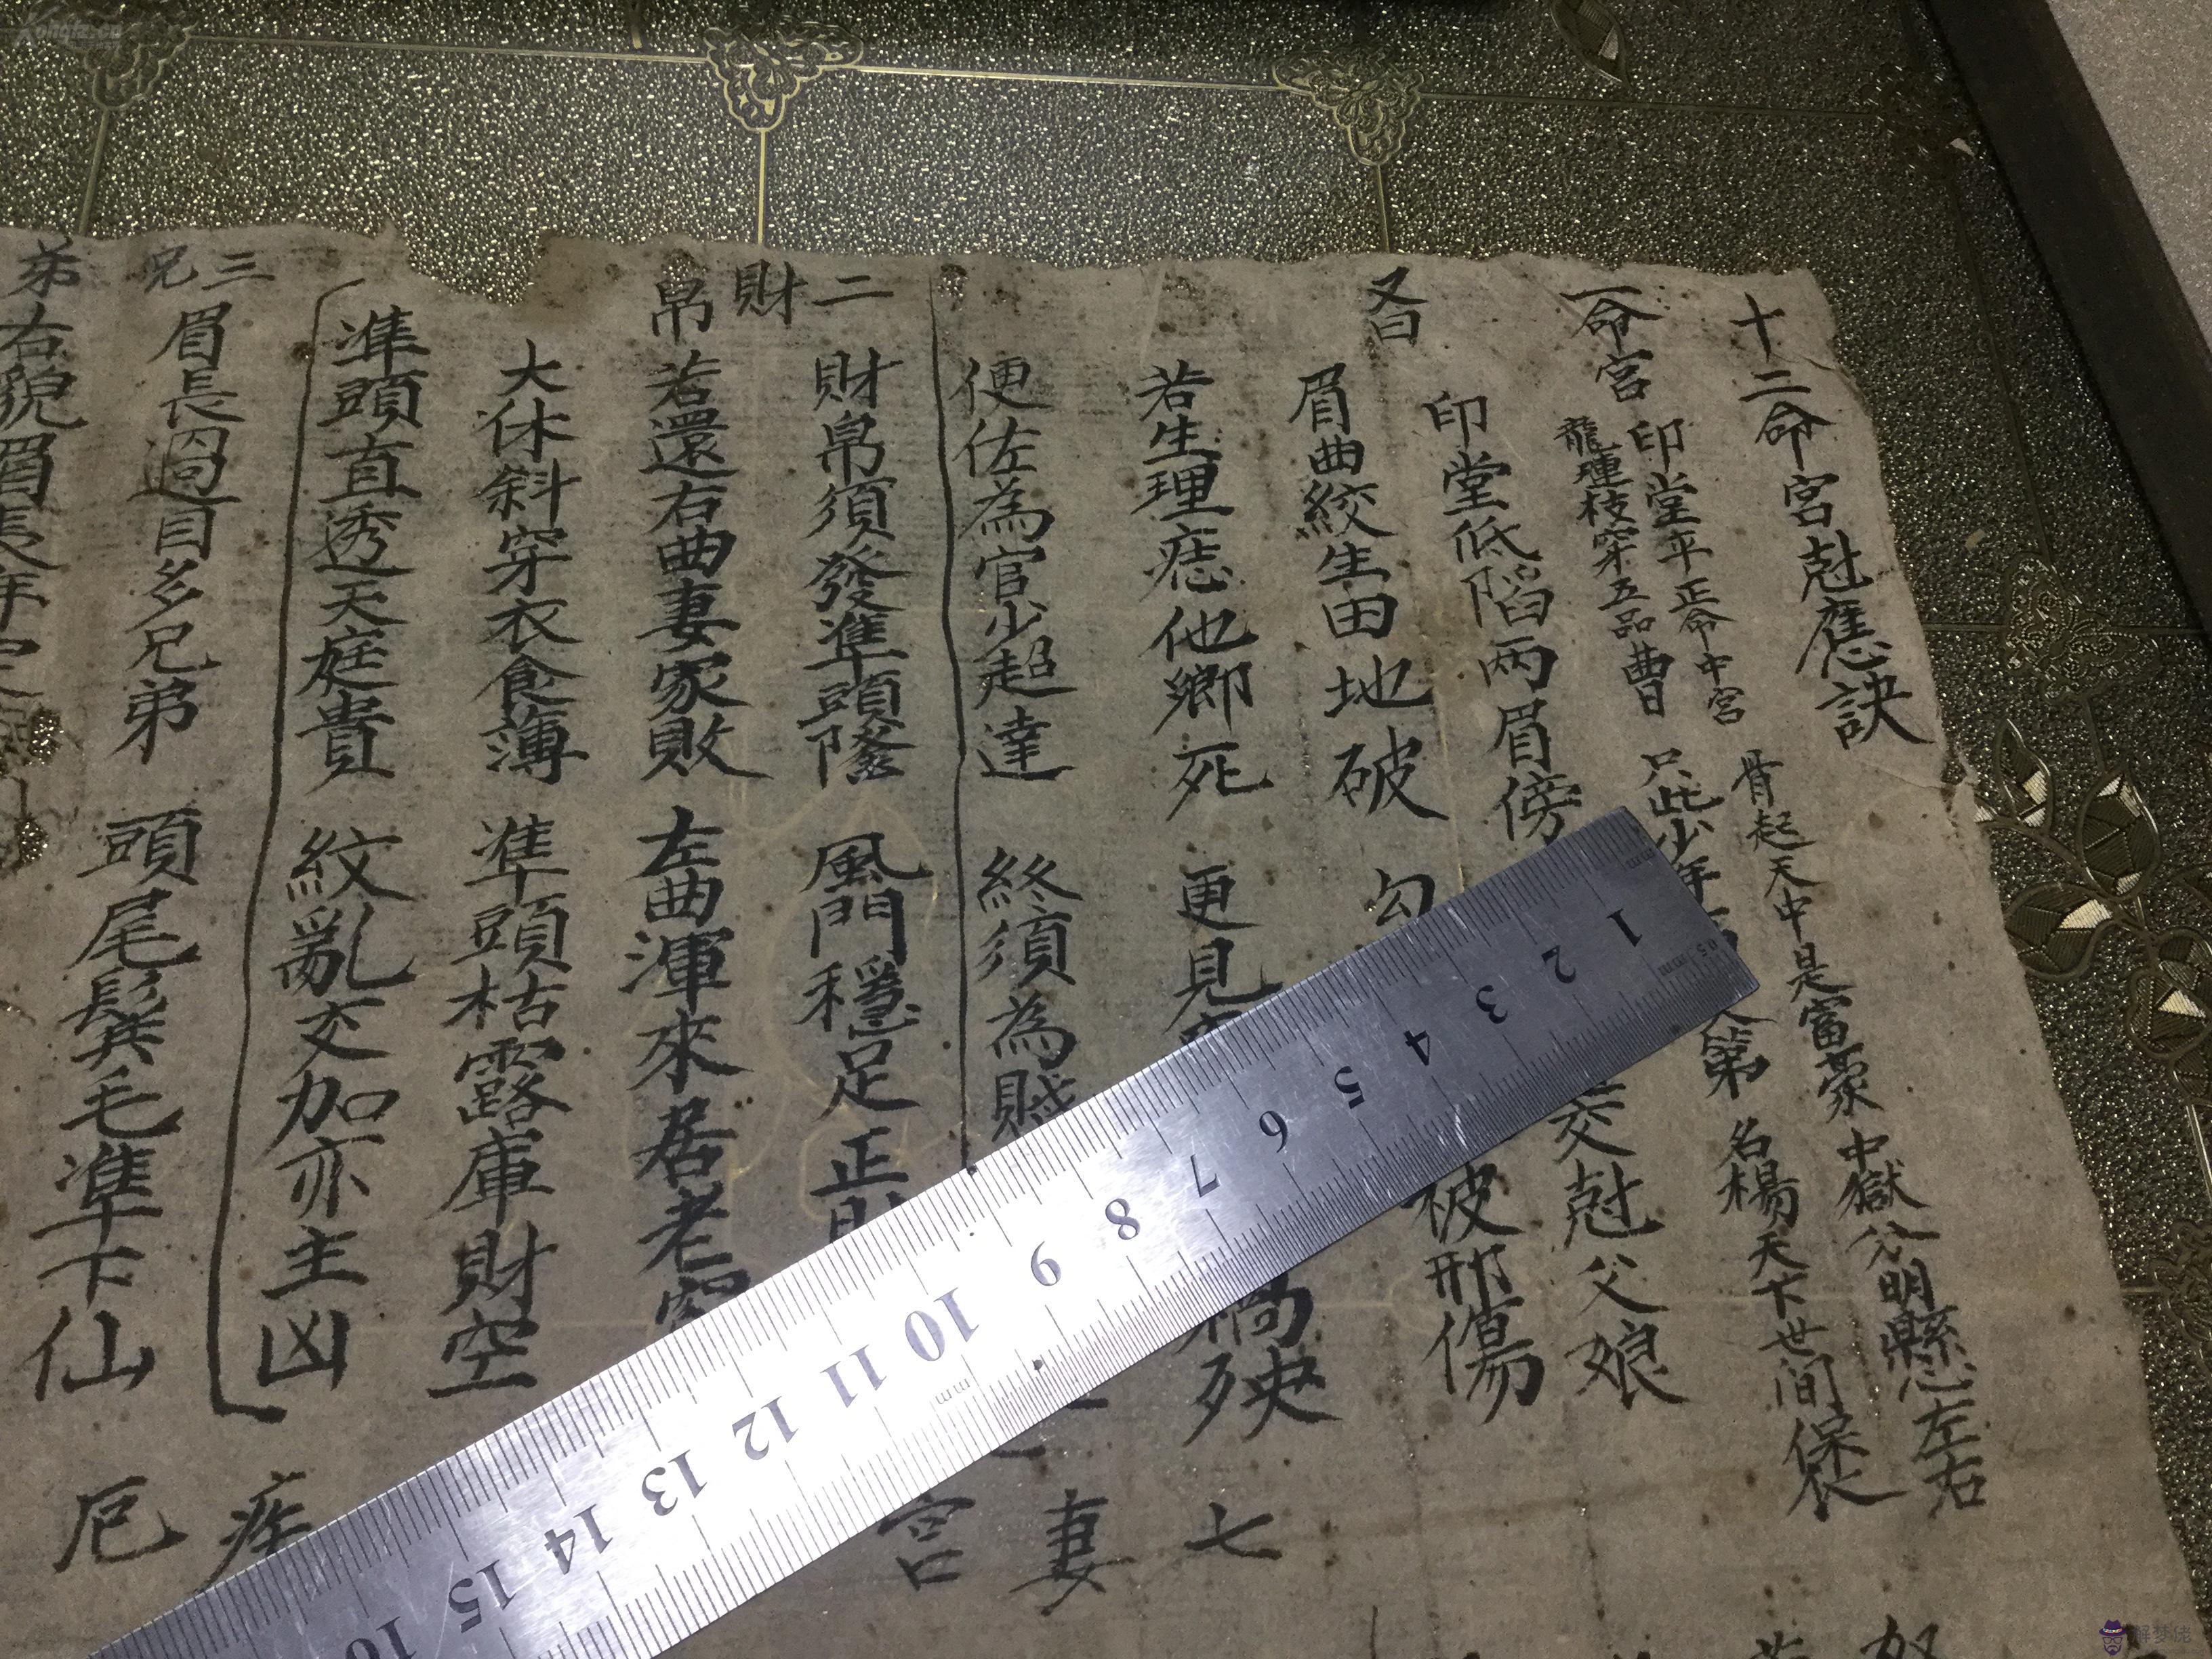 十二命宮尅應訣
一命宮
印堂平正命中宮 骨起天中是富豪 中嶽分明縣左右
龍連枝穿五品曹 只此少年 第 名楊天下世間
印堂低陷兩眉傍 交尅父娘
又曰
眉曲絞生田地破 勾 被刑傷
若生理痣他鄉死 更見 禍殃
便佐為官少超達 終須為賤
二財帛
財帛須發準頭隆 風門穩足正財
若還右曲妻家敗 左曲渾來居老
大休斜穿衣食薄 準頭枯露庫財空
準頭直透天庭貴 紋亂交加亦主凶
三兄弟
眉長過目多兄弟 頭尾鬓毛準下仙
右貌眉長年
七妻宮
疾厄
Kongfz.cn
1 2 3 4 5 6 7 8 9 10 11 12 13 14 15 16
mm
0.5
解梦佬